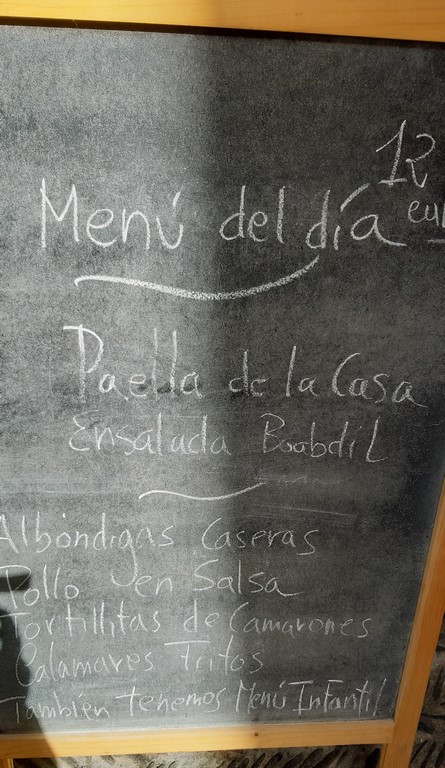 12
eur
Menú del día
Paella de la Casa
Ensalada Boabdil
Albóndigas Caseras
Pollo en Salsa
Tortillitas de Camarones
Calamares Fritos
También tenemos Menú Infantil